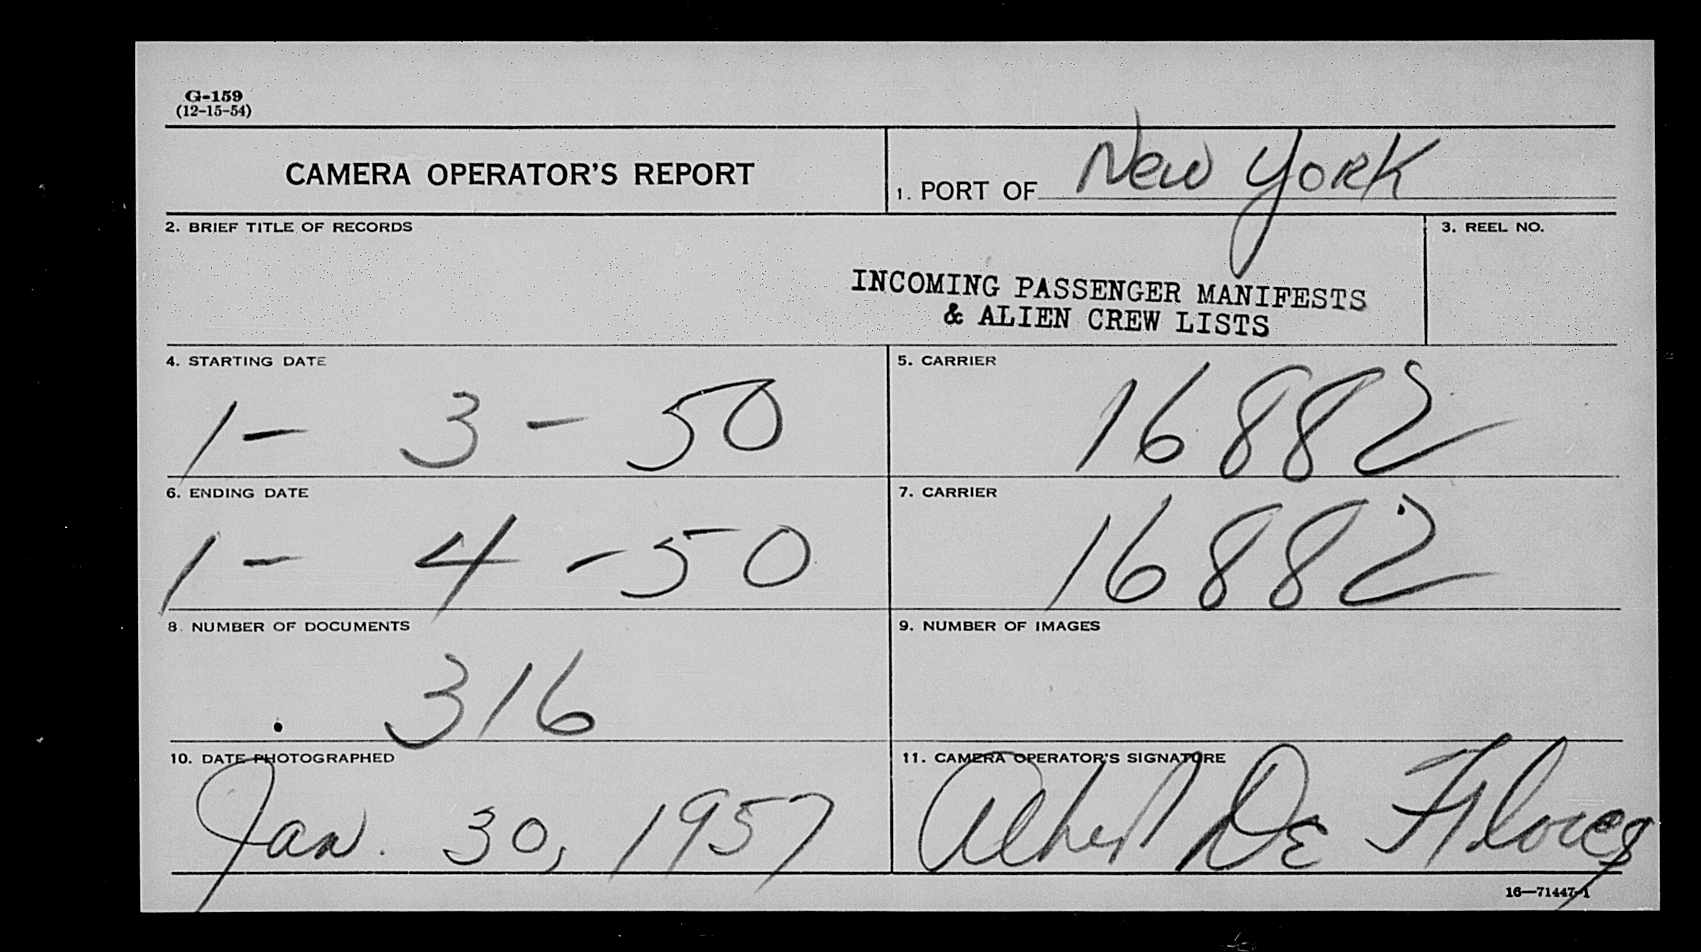 G-159
(12-15-54)
CAMERA OPERATOR'S REPORT
1. PORT OF New York
2. BRIEF TITLE OF RECORDS
3. REEL NO.
INCOMING PASSENGER MANIFESTS
& ALIEN CREW LISTS
4. STARTING DATE
5. CARRIER
1- 3 - 50
16882
6. ENDING DATE
7. CARRIER
1- 4 -50
16882
8. NUMBER OF DOCUMENTS
9. NUMBER OF IMAGES
316
10. DATE PHOTOGRAPHED
11. CAMERA OPERATOR'S SIGNATURE
Jan. 30, 1957
De
16—71447-1